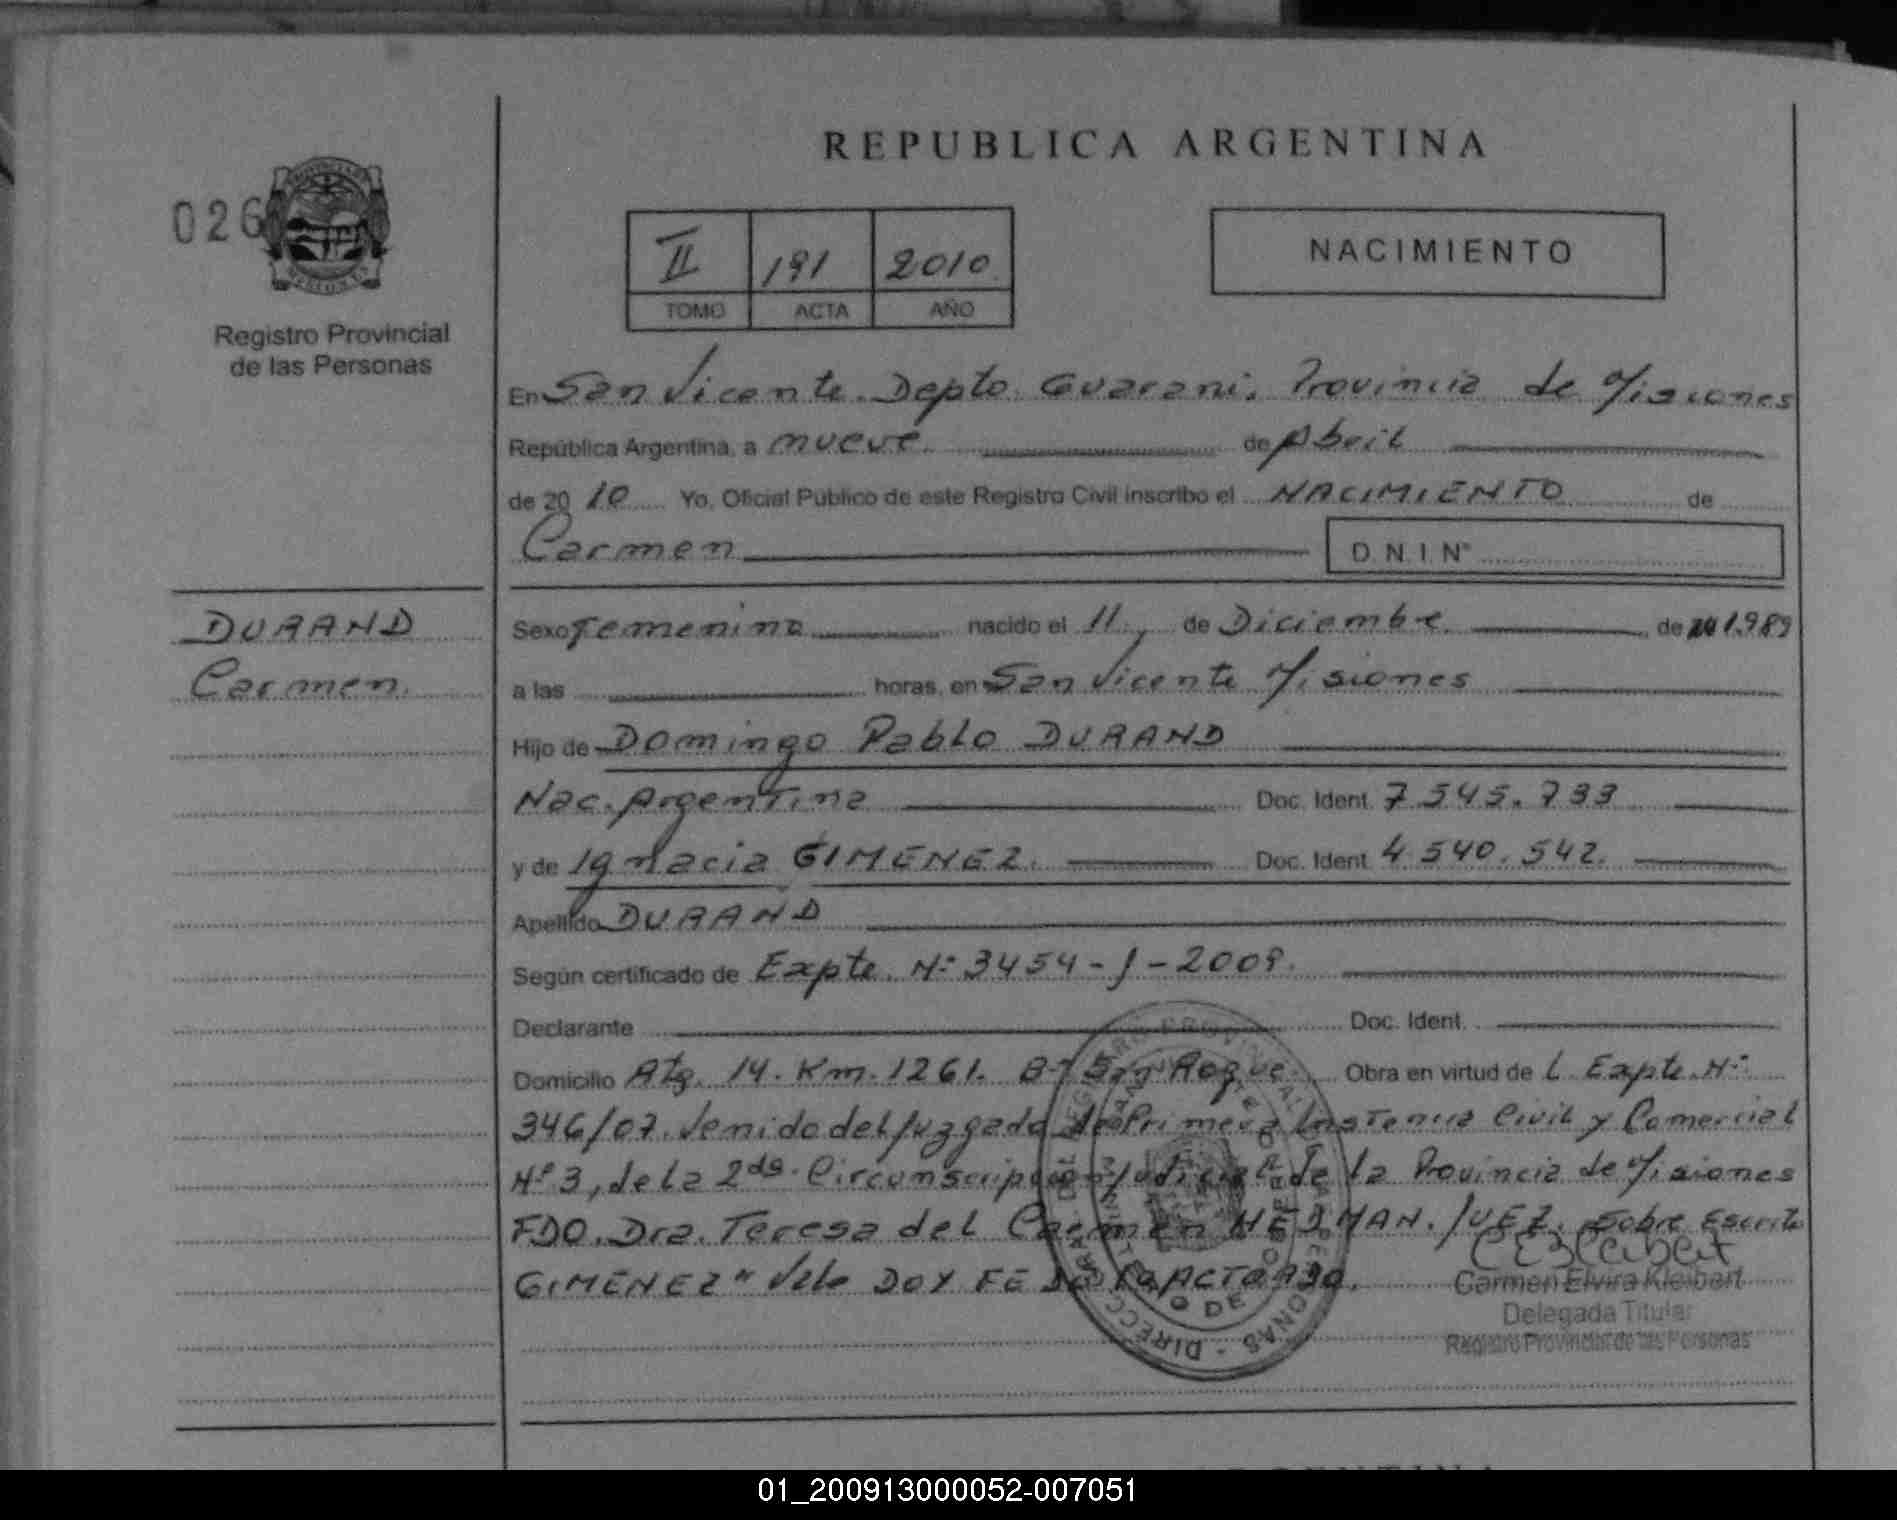 REPUBLICA ARGENTINA
026
II 191 2010
TOMO ACTA AÑO
NACIMIENTO
Registro Provincial
de las Personas
En San Vicente. Depto. Guarani. Provincia de Misiones
República Argentina, a nueve de Abril
de 20 10 Yo, Oficial Público de este Registro Civil inscribo el NACIMIENTO de
Carmen D.N.I. N°
DURAND
Carmen.
Sexo Femenino nacido el 11 de Diciembre de 1989
a las horas, en San Vicente Misiones
Hijo de Domingo Pablo DURAND
Nac. Argentina Doc. Ident. 7.545.733
y de Ignacia GIMENEZ. Doc. Ident. 4.540.542.
Apellido DURAND
Según certificado de Expte. Nº 3454-J-2009.
Declarante Doc. Ident.
Domicilio Km. 1261. Bº San Roque. Obra en virtud de L Expte. Nº
346/07. Venido del Juzgado de Primera Instancia Civil y Comercial
Nº 3, de la 2da. Circunscripcion Judicial de la Provincia de Misiones
FDO. Dra. Teresa del Carmen HEDMAN. JUEZ. Sobre Escrito
GIMENEZ" Vale DOY FE
Carmen Elvira Kleibert
Delegada Titular
Registro Provincial de las Personas
01_200913000052-007051